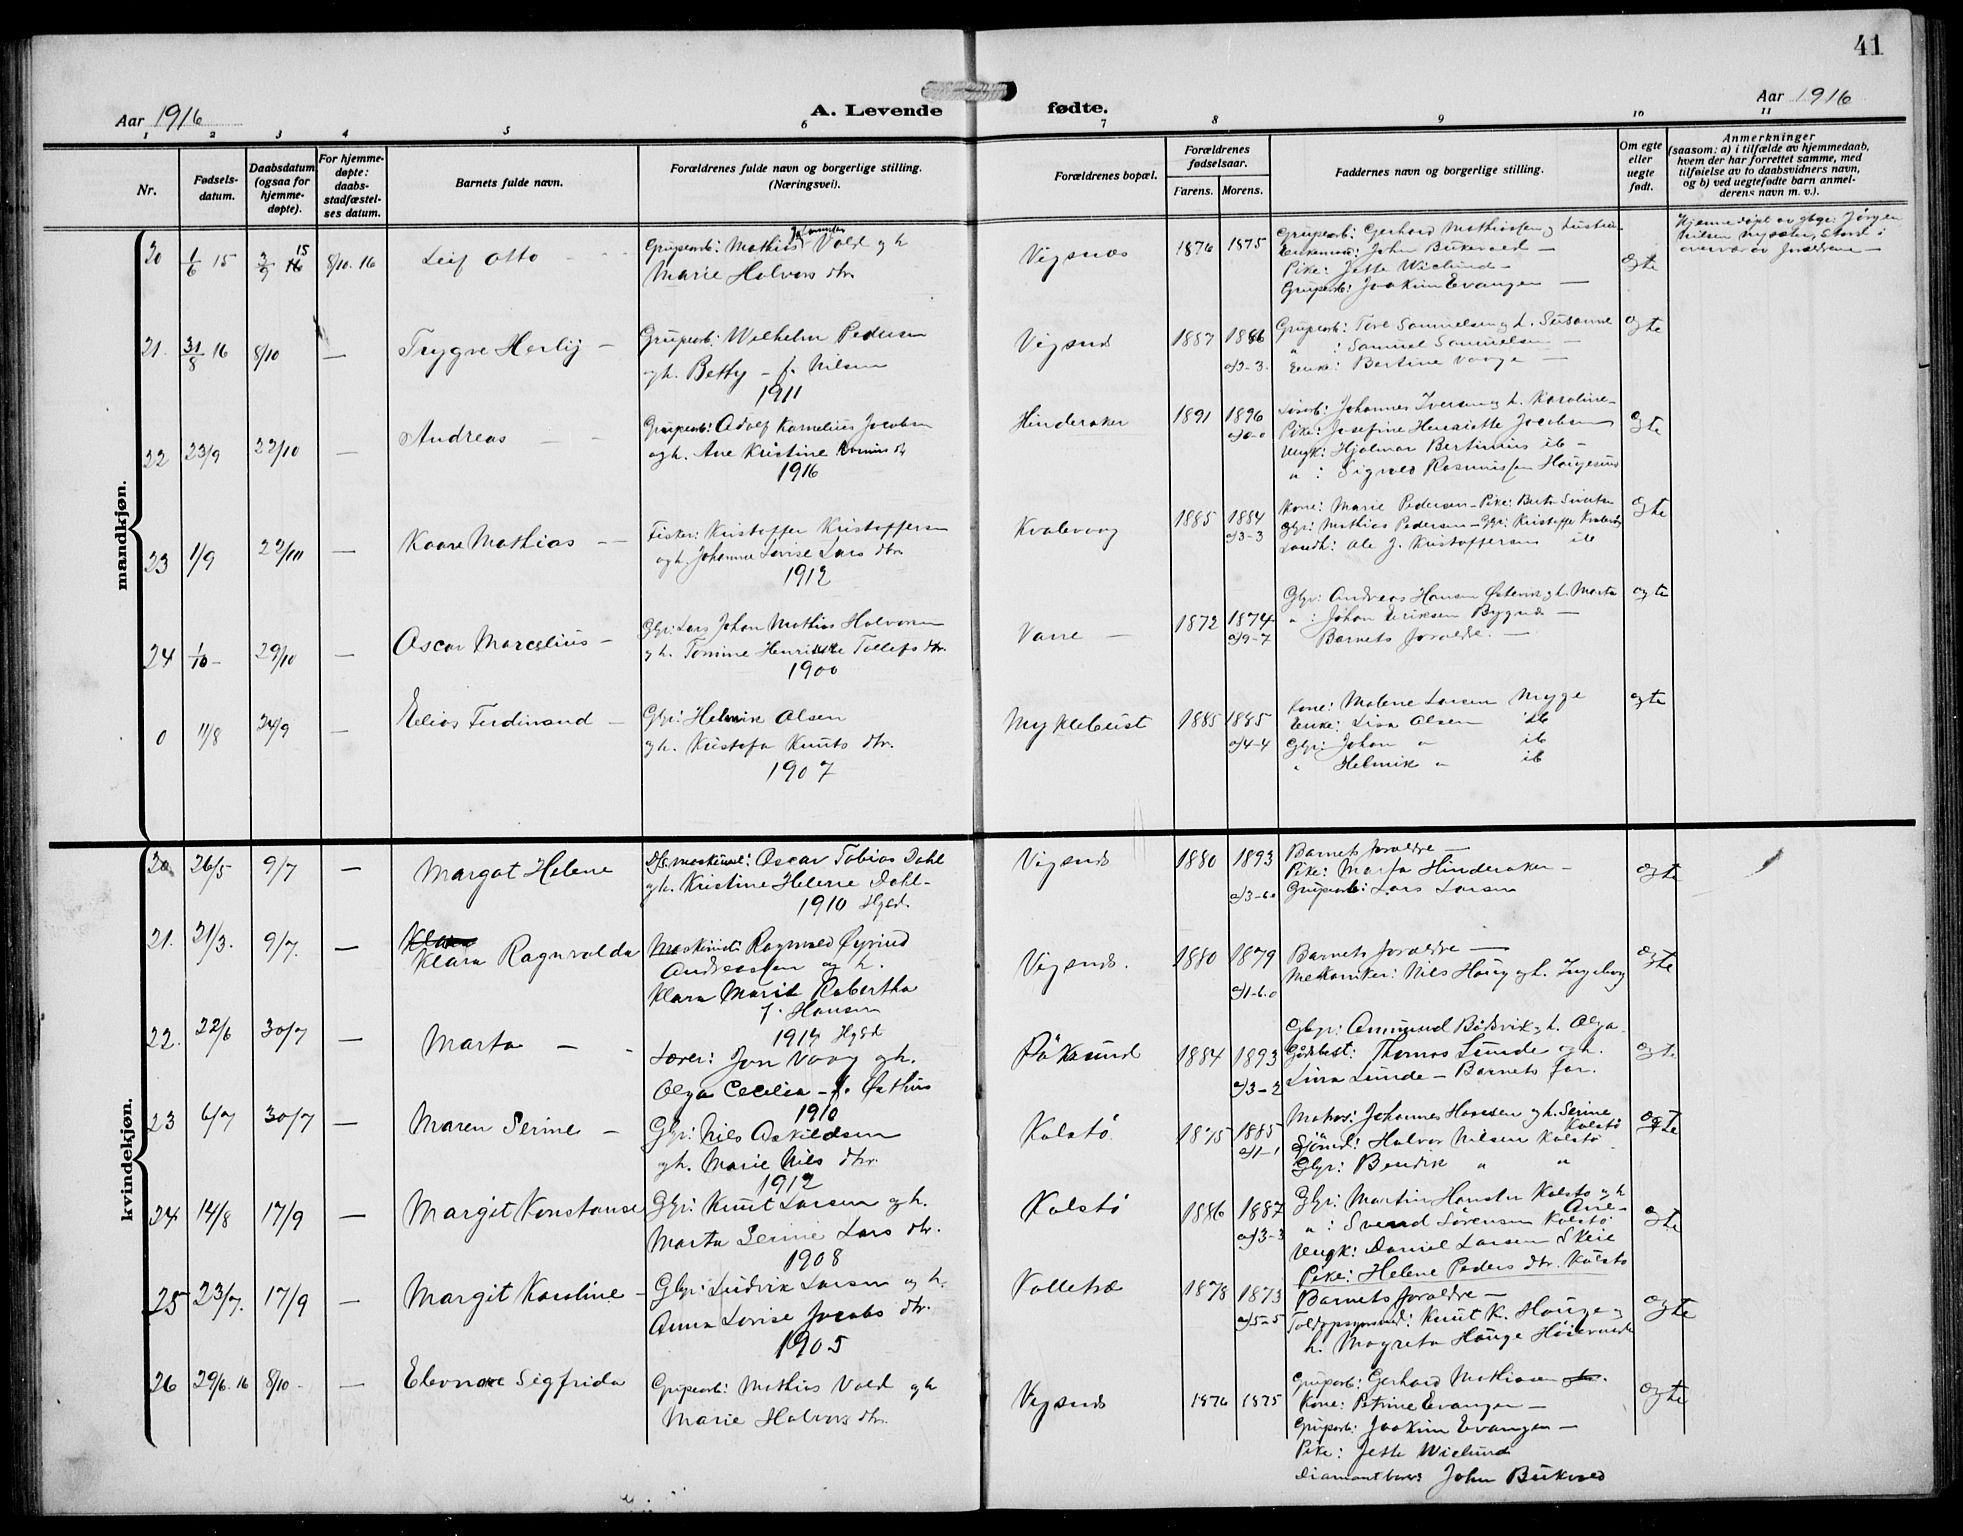 41
Aar 1916
A. Levende fødte.
Aar 1916
1 2 3 4 5 6 7 8 9 10 11
Nr.
Fødsels-
datum.
Daabsdatum
(ogsaa for
hjemme-
døpte).
For hjemme-
døpte:
daabs-
stadfæstel-
ses datum.
Barnets fulde navn.
Forældrenes fulde navn og borgerlige stilling.
(Næringsvei).
Forældrenes bopæl.
Forældrenes
fødselsaar.
Farens. Morens.
Faddernes navn og borgerlige stilling.
Om egte
eller
uegte
født.
Anmerkninger
(saasom: a) i tilfælde av hjemmedaab,
hvem der har forrettet samme, med
tilføielse av to daabsvidners navn,
og b) ved uegtefødte barn anmel-
derens navn m. v.).
mandkjøn.
20 1/6 15 8/10. 16 Leif Otto
Grubearb: Mathias Vold og h.
Marie Halvors dtr.
Vigsnes 1876 1875
Grubearb: Gerhard Mathiassen og
Enkemand: John Bukvold —
Pike: Jette Wiclund —
Grubearb: Joakim Evangen —
Egte
21. 31/8 16 8/10 — Trygve Herlig —
Grubearb: Wilhelm Pedersen
og h. Betty — f. Nilsen
1911
Vigsnes 1887 1886
a/3-3.
Grubearb: Tore Samuelsen og h. Susanne
" : Samuel Samuelsen —
Enke: Bertine Vaage —
Egte
22 23/9 22/10 — Andreas —
Grubearb: Adolf Kornelius Jacobsen
og h. Ane Kristine
1916
Hinderaker 1891 1896
a/0-0
Johannes Iversen og h. Karoline —
Pike: Josefine Henriette Jacobsen
Ungk: Hjalmar Bertinius ib —
" : Sigvald Rasmussen Haugesund
Egte
23 1/9 22/10 — Kaare Mathias —
Fisker: Kristoffer Kristoffersen
og h. Johanne Lovise Lars dtr.
1912
Kvalevaag 1885 1884
a/3-3
Kone: Marie Pedersen — Pike: Berta
Gbr: Mathias Pedersen — Gbr: Kristoffer Kvalevåg
Landh: Ole J. Kristoffersen ib
Egte
24 1/10 — 29/10 — Oscar Marcelius —
Gbr: Lars Johan Mathias Halvorsen
og h. Tomine Henrikke Tollefs dtr.
1900
Varre — 1872 1874
a/9-7
Gbr: Andreas Hansen Østervik og h. Marta
" : Johan Eriksen Bygnes —
Barnets foraldre. —
Egte
0 11/8 24/9 — Elias Ferdinand —
Gbr: Helmik Olsen
og h. Kristofa Knuts dtr.
1907
Myklebust 1885 1885
a/4-4
Kone: Malene Larsen Myge
Enke: Lisa Olsen ib
Gbr: Johan " ib
" Helmik " ib
Egte
kvindekjøn.
20 26/5 9/7 — Margot Helene
maskinist: Oscar Tobias Dahl
og h. Kristine Helene Dahl —
1910 Hgsd.
Vigsnes 1880 1893
a/3-6.0
Barnets foraldre —
Pike: Marta Hinderaker —
Grubearb: Lars Larsen
Egte
21. 21/3. 9/7. — Klara
Klara Ragnvalda
Maskinist: Ragnvald Øyvind
Andreassen og h.
Klara Marie Robertha
f. Hansen
1914 Hgsd
Vigsnes. 1880 1879
a/1-6.0
Barnets foraldre —
Mekaniker: Nils Haug og h. Ingeborg
Egte
22. 22/6 30/7 — Marta —
Lærer: Jon Vaag og h.
Olga Cecilia — f. Østhus
1910
Røksund 1884 1893
a/3-2
Gbr: Amund Bødsvik og h. Olga —
Thomas Lunde og h.
Lina Lunde — Barnets far.
Egte
23 6/7 30/7 — Maren Serine —
Gbr: Nils Askildsen
og h. Marie Nils dtr.
1912
Kolstø 1875 1885
a/1-1
Matros: Johannes Hovesen og h. Serine
Kolstø
Sjømd: Halvor Nilsen Kolstø
Gbr: Bendik " "
Egte
24 14/8 17/9 — Margit Konstanse
Gbr: Knut Larsen og h.
Marta Serine Lars dtr.
1908
Kolstø 1886 1887
a/3-3
Gbr: Martin Hansen Kolstø og h
Ane —
" : Svend Sørensen Kolstø
Ungk: Daniel Larsen Skeie
Pike: Helene Peders dtr. Kolstø
Egte
25 23/7. 17/9 — Margit Karoline —
Gbr: Ludvik Larsen og h.
Anna Lovise Jacobs dtr.
1905
Valletræ 1878 1873
a/5-5
Barnets foraldre —
Toldopsynsmd: Knut K. Hauge og
h. Magreta Hauge
Egte
26 29/6. 16 8/10 — Elevnore Sigfrida
Grubearb: Mathias Vold og h
Marie Halvors dtr.
Vigsnes 1876 1875
Grubearb: Gerhard Mathiasen
Kone: Petrine Evangen —
Grubearb: Joakim Evangen —
Pike: Jette Wiclund
Diamantborer: John Bukvold
Egte